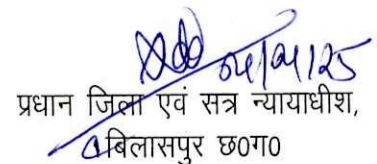 04/04/25
प्रधान जिला एवं सत्र न्यायाधीश,
बिलासपुर छ0ग0